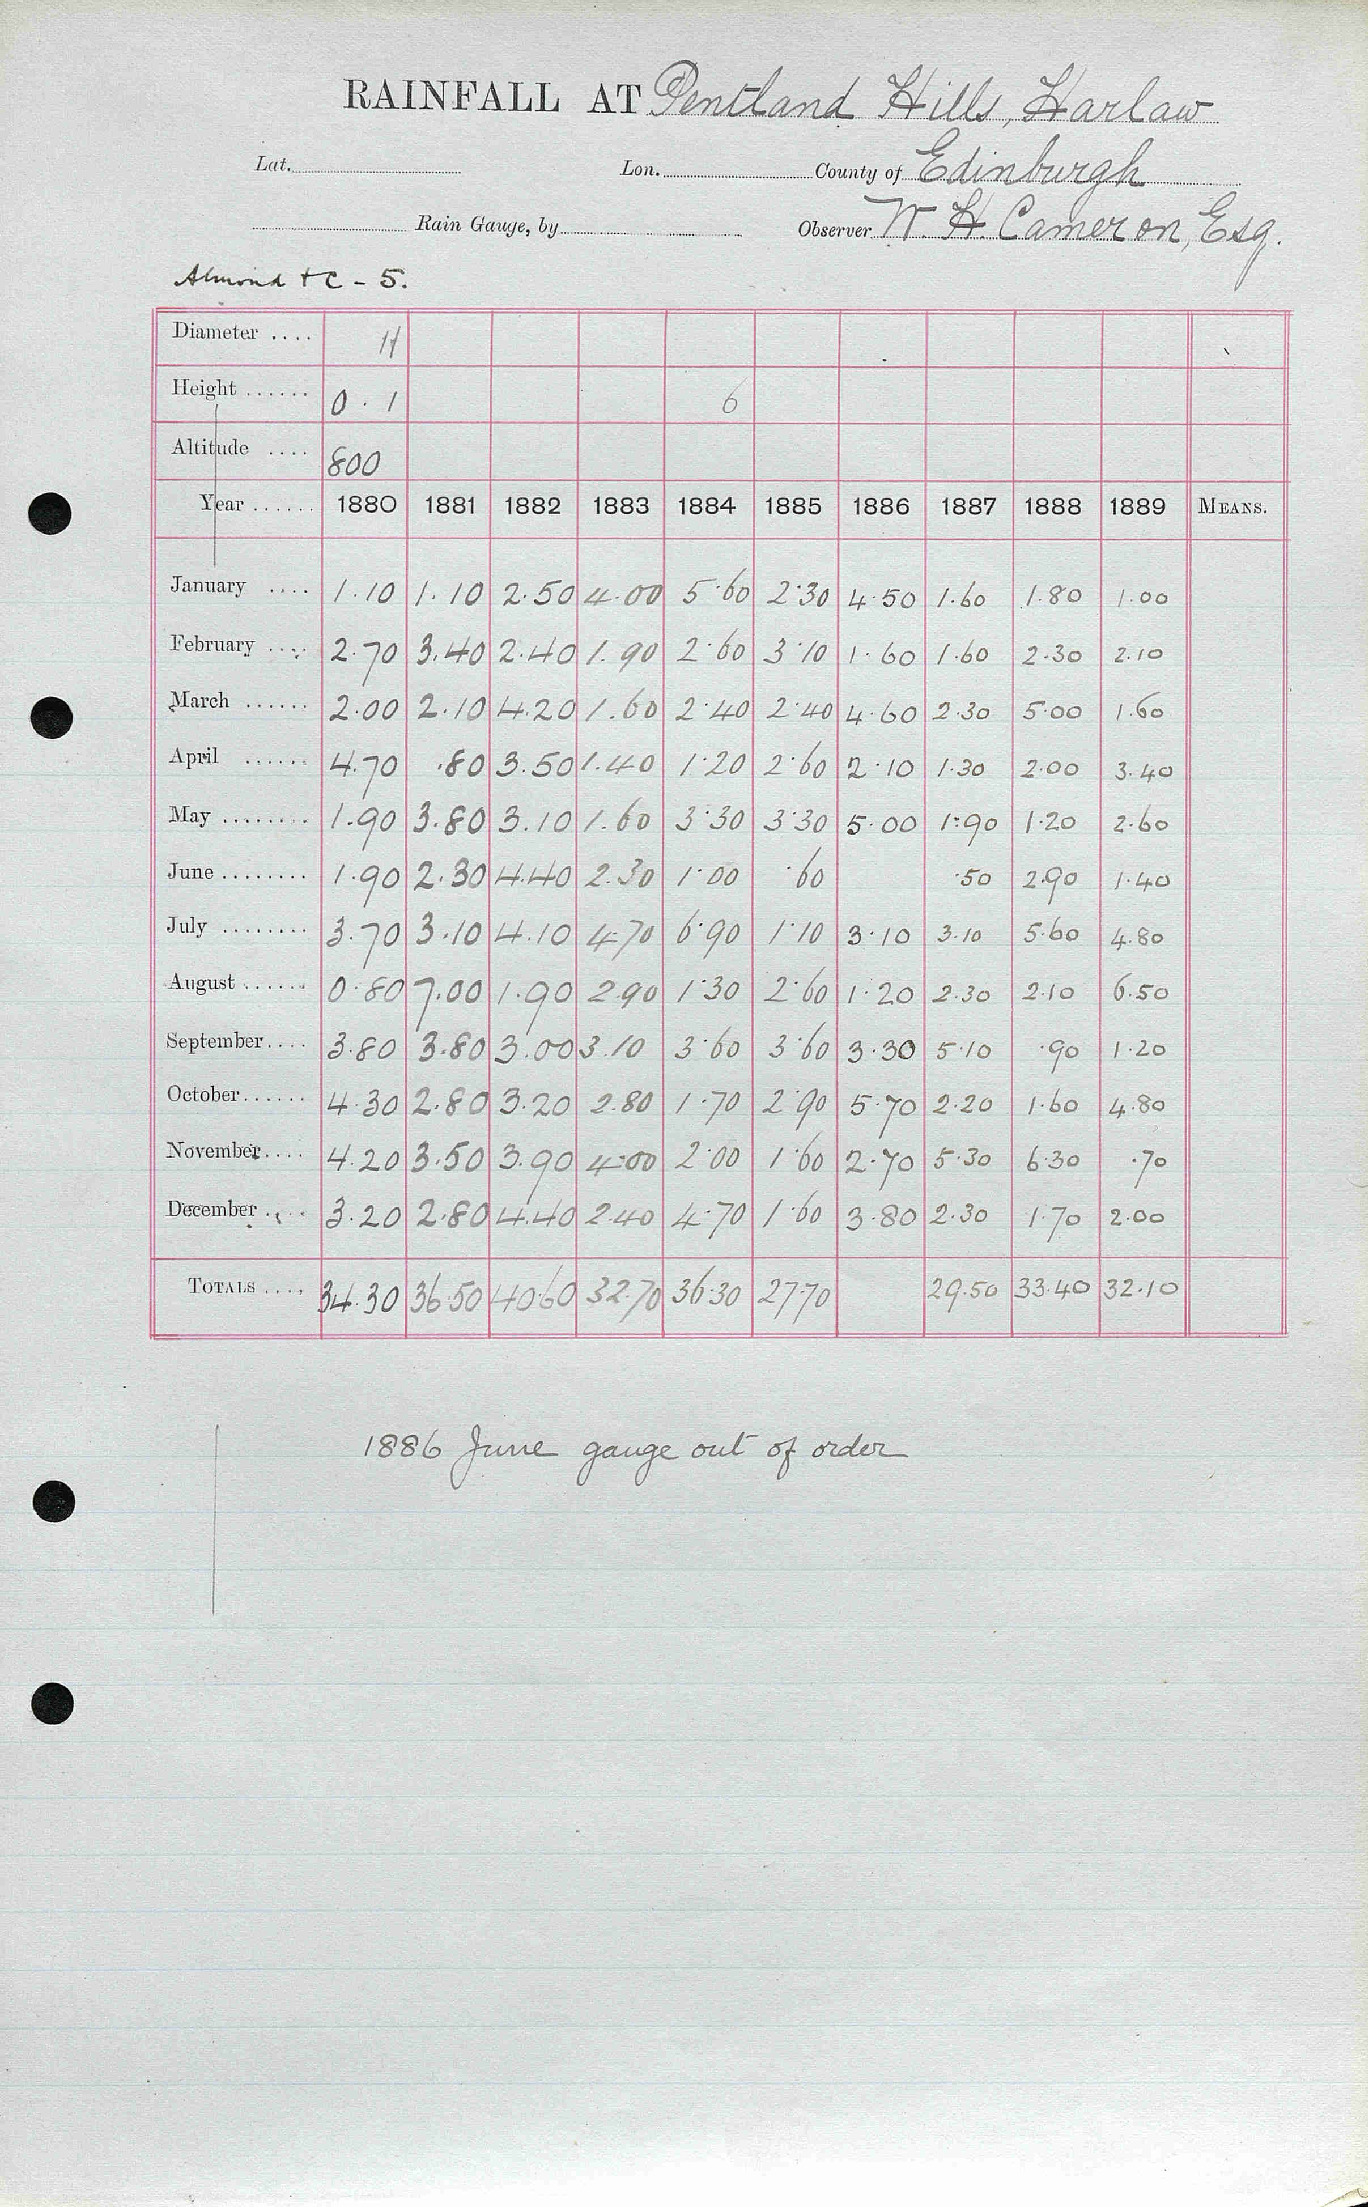 RAINFALL AT Pentland Hills, Harlaw
Lat. Lon. County of Edinburgh
Rain Gauge, by Observer W. H. Cameron, Esq.
Almond + C - 5.
Diameter .... 11
Height ...... 0 . 1 6
Altitude .... 800
Year ...... 1880 1881 1882 1883 1884 1885 1886 1887 1888 1889 MEANS.
January .... 1.10 1.10 2.50 4.00 5.60 2.30 4.50 1.60 1.80 1.00
February .... 2.70 3.40 2.40 1.90 2.60 3.10 1.60 1.60 2.30 2.10
March ...... 2.00 2.10 4.20 1.60 2.40 2.40 4.60 2.30 5.00 1.60
April ...... 4.70 .80 3.50 1.40 1.20 2.60 2.10 1.30 2.00 3.40
May ........ 1.90 3.80 3.10 1.60 3.30 3.30 5.00 1.90 1.20 2.60
June ........ 1.90 2.30 4.40 2.30 1.00 .60 .50 2.90 1.40
July ........ 3.70 3.10 4.10 4.70 6.90 1.10 3.10 3.10 5.60 4.80
August ...... 0.80 7.00 1.90 2.90 1.30 2.60 1.20 2.30 2.10 6.50
September.... 3.80 3.80 3.00 3.10 3.60 3.60 3.30 5.10 .90 1.20
October...... 4.30 2.80 3.20 2.80 1.70 2.90 5.70 2.20 1.60 4.80
November.... 4.20 3.50 3.90 4.00 2.00 1.60 2.70 5.30 6.30 .70
December .... 3.20 2.80 4.40 2.40 4.70 1.60 3.80 2.30 1.70 2.00
TOTALS .... 34.30 36.50 40.60 32.70 36.30 27.70 29.50 33.40 32.10
1886 June gauge out of order